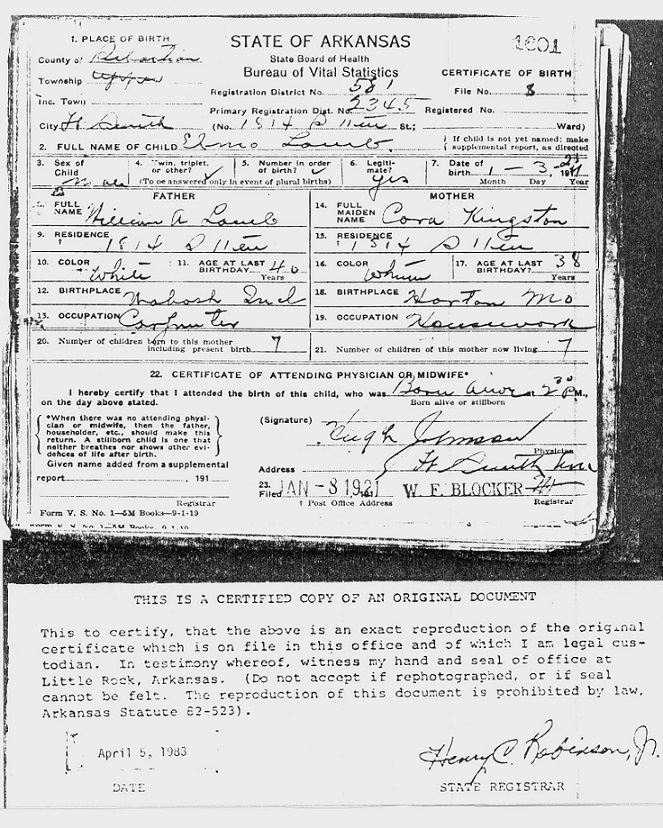 1. PLACE OF BIRTH
STATE OF ARKANSAS
1601
County of Sebastian
State Board of Health
Township Upper
Bureau of Vital Statistics
CERTIFICATE OF BIRTH
Registration District No. 581
File No. 8
Inc. Town
Primary Registration Dist. No. 2345
Registered No.
City Ft Smith (No. 1814 S 11th St.; Ward)
2. FULL NAME OF CHILD Elmo Lamb.
{ If child is not yet named; make supplemental report, as directed
3. Sex of Child Male
4. Twin, triplet, or other? ✓
5. Number in order of birth? ✓
(To be answered only in event of plural births)
6. Legitimate? yes
7. Date of birth 1 - 3 - 1921
Month Day Year
FATHER
MOTHER
8. FULL NAME William A Lamb
14. FULL MAIDEN NAME Cora Kingston
9. RESIDENCE 1814 S 11th
15. RESIDENCE 1814 S 11th
10. COLOR White
11. AGE AT LAST BIRTHDAY 40 Years
16. COLOR White
17. AGE AT LAST BIRTHDAY? 38 Years
12. BIRTHPLACE Wabash Ind
18. BIRTHPLACE Horton Mo
13. OCCUPATION Carpenter
19. OCCUPATION Housework
20. Number of children born to this mother including present birth 7
21. Number of children of this mother now living 7
22. CERTIFICATE OF ATTENDING PHYSICIAN OR MIDWIFE*
I hereby certify that I attended the birth of this child, who was Born alive at 2 30 P M.,
on the day above stated.
Born alive or stillborn
{ *When there was no attending physi-
cian or midwife, then the father,
householder, etc., should make this
return. A stillborn child is one that
neither breathes nor shows other evi-
dences of life after birth. }
(Signature) Hugh Johnson
Physician
Given name added from a supplemental
Address Ft Smith Ark
report 191
23. Filed JAN - 8 1921 191
W. F. BLOCKER
Registrar
† Post Office Address
Registrar
Form V. S. No. 1—5M Books—9-1-19
Form V. S. No. 1—5M Books—9-1-19
THIS IS A CERTIFIED COPY OF AN ORIGINAL DOCUMENT
This to certify, that the above is an exact reproduction of the original
certificate which is on file in this office and of which I am legal cus-
todian. In testimony whereof, witness my hand and seal of office at
Little Rock, Arkansas. (Do not accept if rephotographed, or if seal
cannot be felt. The reproduction of this document is prohibited by law,
Arkansas Statute 82-523).
April 5, 1983
Henry C. Robinson, Jr.
DATE
STATE REGISTRAR